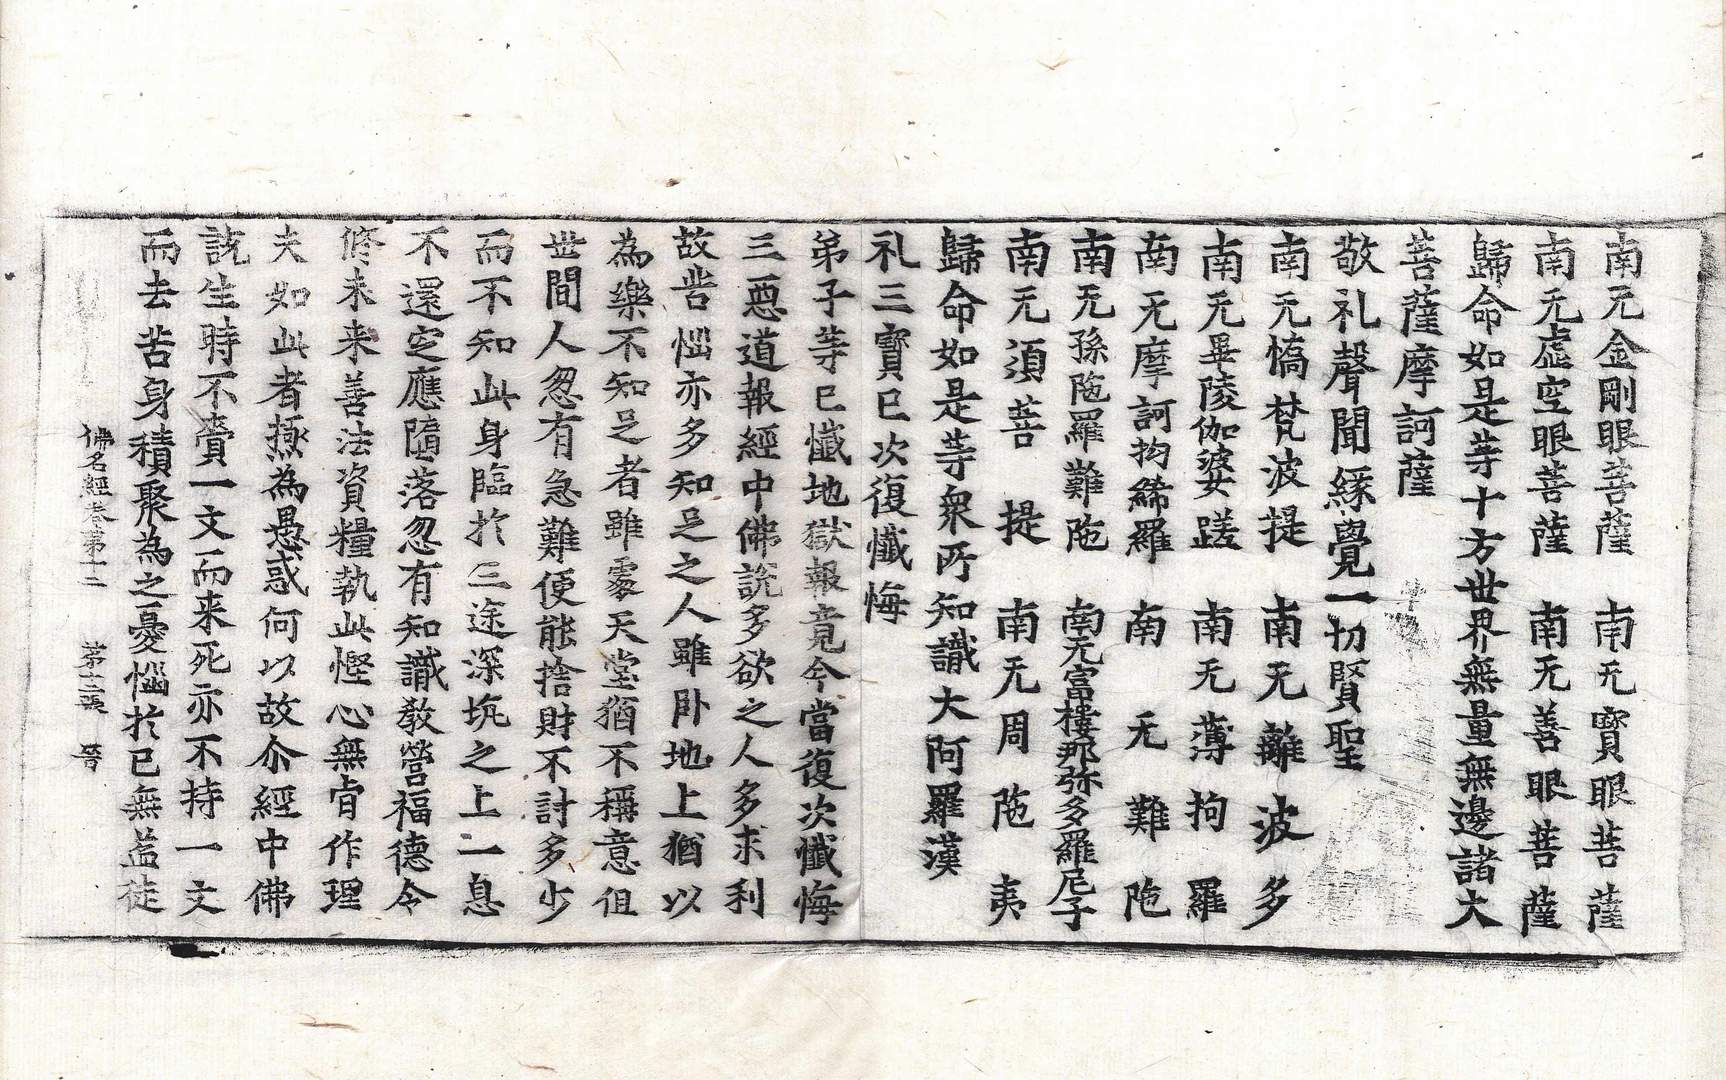 南无金剛眼菩薩 南无寳眼菩薩
南无虛空眼菩薩 南无善眼菩薩
歸命如是等十方世界無量無邊諸大
菩薩摩訶薩
敬礼聲聞緣覺一切賢聖
南无憍梵波提 南无離波多
南无畢陵伽婆蹉 南无薄拘羅
南无摩訶拘絺羅 南无難陁
南无孫陁羅難陁 南无富樓那弥多羅尼子
南无須菩提 南无周陁夷
歸命如是等衆所知識大阿羅漢
礼三寳已次復懺悔
弟子等已懺地獄報竟今當復次懺悔
三惡道報經中佛說多欲之人多求利
故苦惱亦多知足之人雖卧地上猶以
為樂不知足者雖處天堂猶不稱意但
世間人忽有急難便能捨財不計多少
而不知此身臨於三途深坑之上一息
不還定應隨落忽有知識敎營福德令
修未来善法資糧執此慳心無肯作理
夫如此者極為愚惑何以故尒經中佛
說生時不賷一文而来死亦不持一文
而去苦身積聚為之憂惱於已無益徒
佛名經卷第十二 第十二張 晉